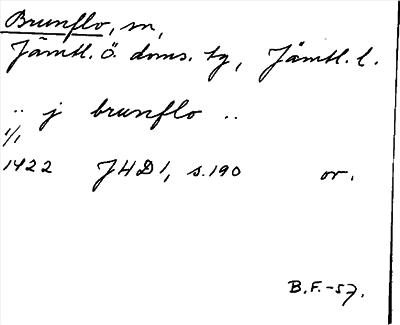 Brunflo, sn,
Jämtl. ö. doms. tg, Jämtl. l.
.. j brunflo ..
1/1
1422 JHD 1, s. 190 or.
B.F.-57.